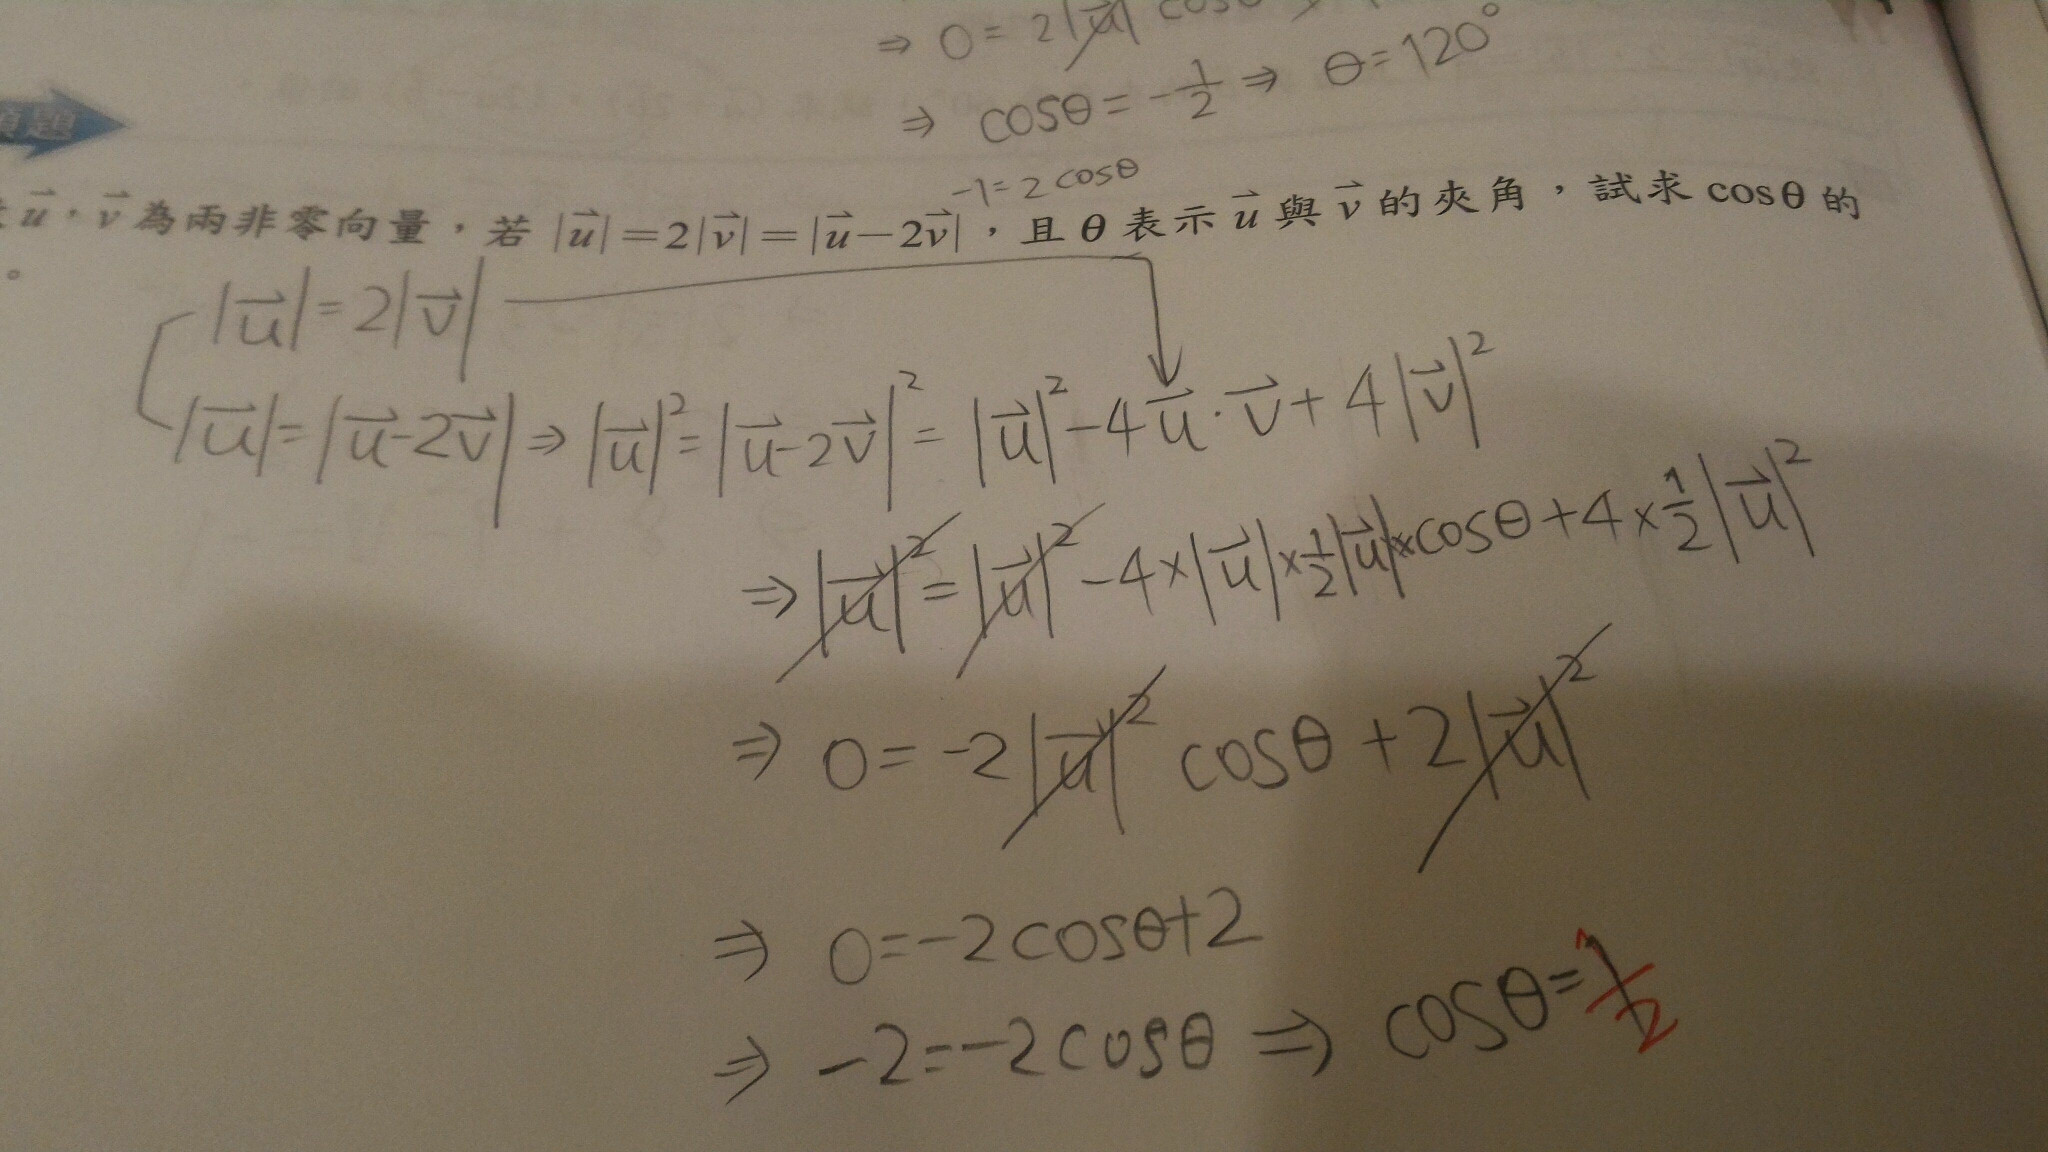 ⇒ 0 = 2|u⃗| cosθ
⇒ cosθ = -1/2 ⇒ θ = 120°
題
-1 = 2 cosθ
u⃗，v⃗ 為兩非零向量，若 |u⃗| = 2|v⃗| = |u⃗ - 2v⃗|，且 θ 表示 u⃗ 與 v⃗ 的夾角，試求 cosθ 的
。
|u⃗| = 2|v⃗|
|u⃗| = |u⃗ - 2v⃗| ⇒ |u⃗|² = |u⃗ - 2v⃗|² = |u⃗|² - 4u⃗·v⃗ + 4|v⃗|²
⇒ |u⃗|² = |u⃗|² - 4×|u⃗|×1/2|u⃗|×cosθ + 4×1/2|u⃗|²
⇒ 0 = -2|u⃗|² cosθ + 2|u⃗|²
⇒ 0 = -2cosθ + 2
⇒ -2 = -2cosθ ⇒ cosθ = 1/2